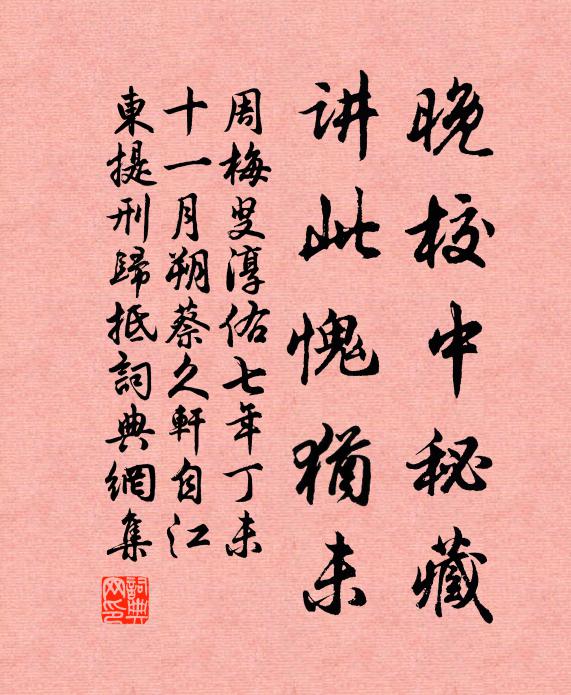 晚校中秘藏
讲此愧猶未
周梅叟淳佑七年丁未
十一月朔蔡久軒自江
東提刑歸抵詞典網集
詞典
网印